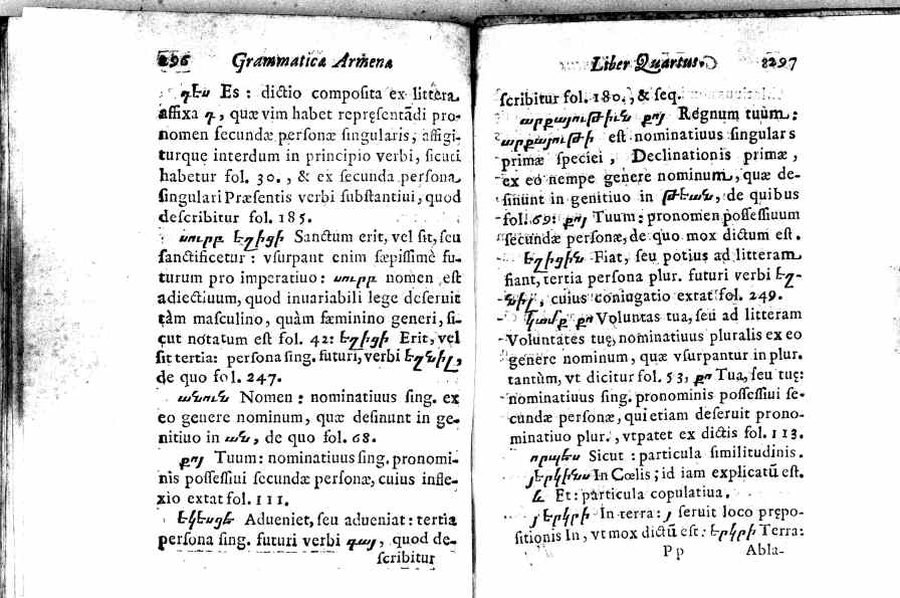 296 Grammatica Armena
դես Es : dictio composita ex littera
affixa դ, quæ vim habet repręsentādi pro-
nomen secundæ personæ singularis, affigi-
turque interdum in principio verbi, sicuti
habetur fol. 30., & ex secunda persona
singulari Præsentis verbi substantiui, quod
describitur fol. 185.
սուրբ եղիցի Sanctum erit, vel sit, seu
sanctificetur : vsurpant enim sæpissimè fu-
turum pro imperatiuo : սուրբ nomen est
adiectiuum, quod inuariabili lege deseruit
tàm masculino, quàm fæminino generi, si-
cut notatum est fol. 42: եղիցի Erit, vel
sit tertia: persona sing. futuri, verbi եղնիլ,
de quo fol. 247.
անուն Nomen : nominatiuus sing. ex
eo genere nominum, quæ desinunt in ge-
nitiuo in ան, de quo fol. 68.
քոյ Tuum: nominatiuus sing. pronomi-
nis possessiui secundæ personæ, cuius infle-
xio extat fol. 111.
եկեսցե Adueniet, seu adueniat: tertia
persona sing. futuri verbi գալ, quod de-
scribitur
Liber Quartus. 297
scribitur fol. 180., & seq.
արքայութիւն քոյ Regnum tuùm:
արքայութի est nominatiuus singulars
primæ speciei, Declinationis primæ,
ex eo nempe genere nominum, quæ de-
sinunt in genitiuo in թեան, de quibus
fol. 69: քոյ Tuum: pronomen possessiuum
secundæ personæ, de quo mox dictum est.
եղիցին Fiat, seu potius ad litteram
fiant, tertia persona plur. futuri verbi եղ-
նիլ, cuius coniugatio extat fol. 249.
կամք քո Voluntas tua, seu ad litteram
Voluntates tuę, nominatiuus pluralis ex eo
genere nominum, quæ vsurpantur in plur.
tantùm, vt dicitur fol. 53, քո Tua, seu tuę:
nominatiuus sing. pronominis possessiui se-
cundæ personæ, qui etiam deseruit prono-
minatiuo plur., vt patet ex dictis fol. 113.
որպես Sicut : particula similitudinis.
յերկինս In Cœlis; id iam explicatū est.
և Et: particula copulatiua.
յերկրի In terra: յ seruit loco prępo-
sitionis In, vt mox dictū est: երկրի Terra:
Pp Abla-